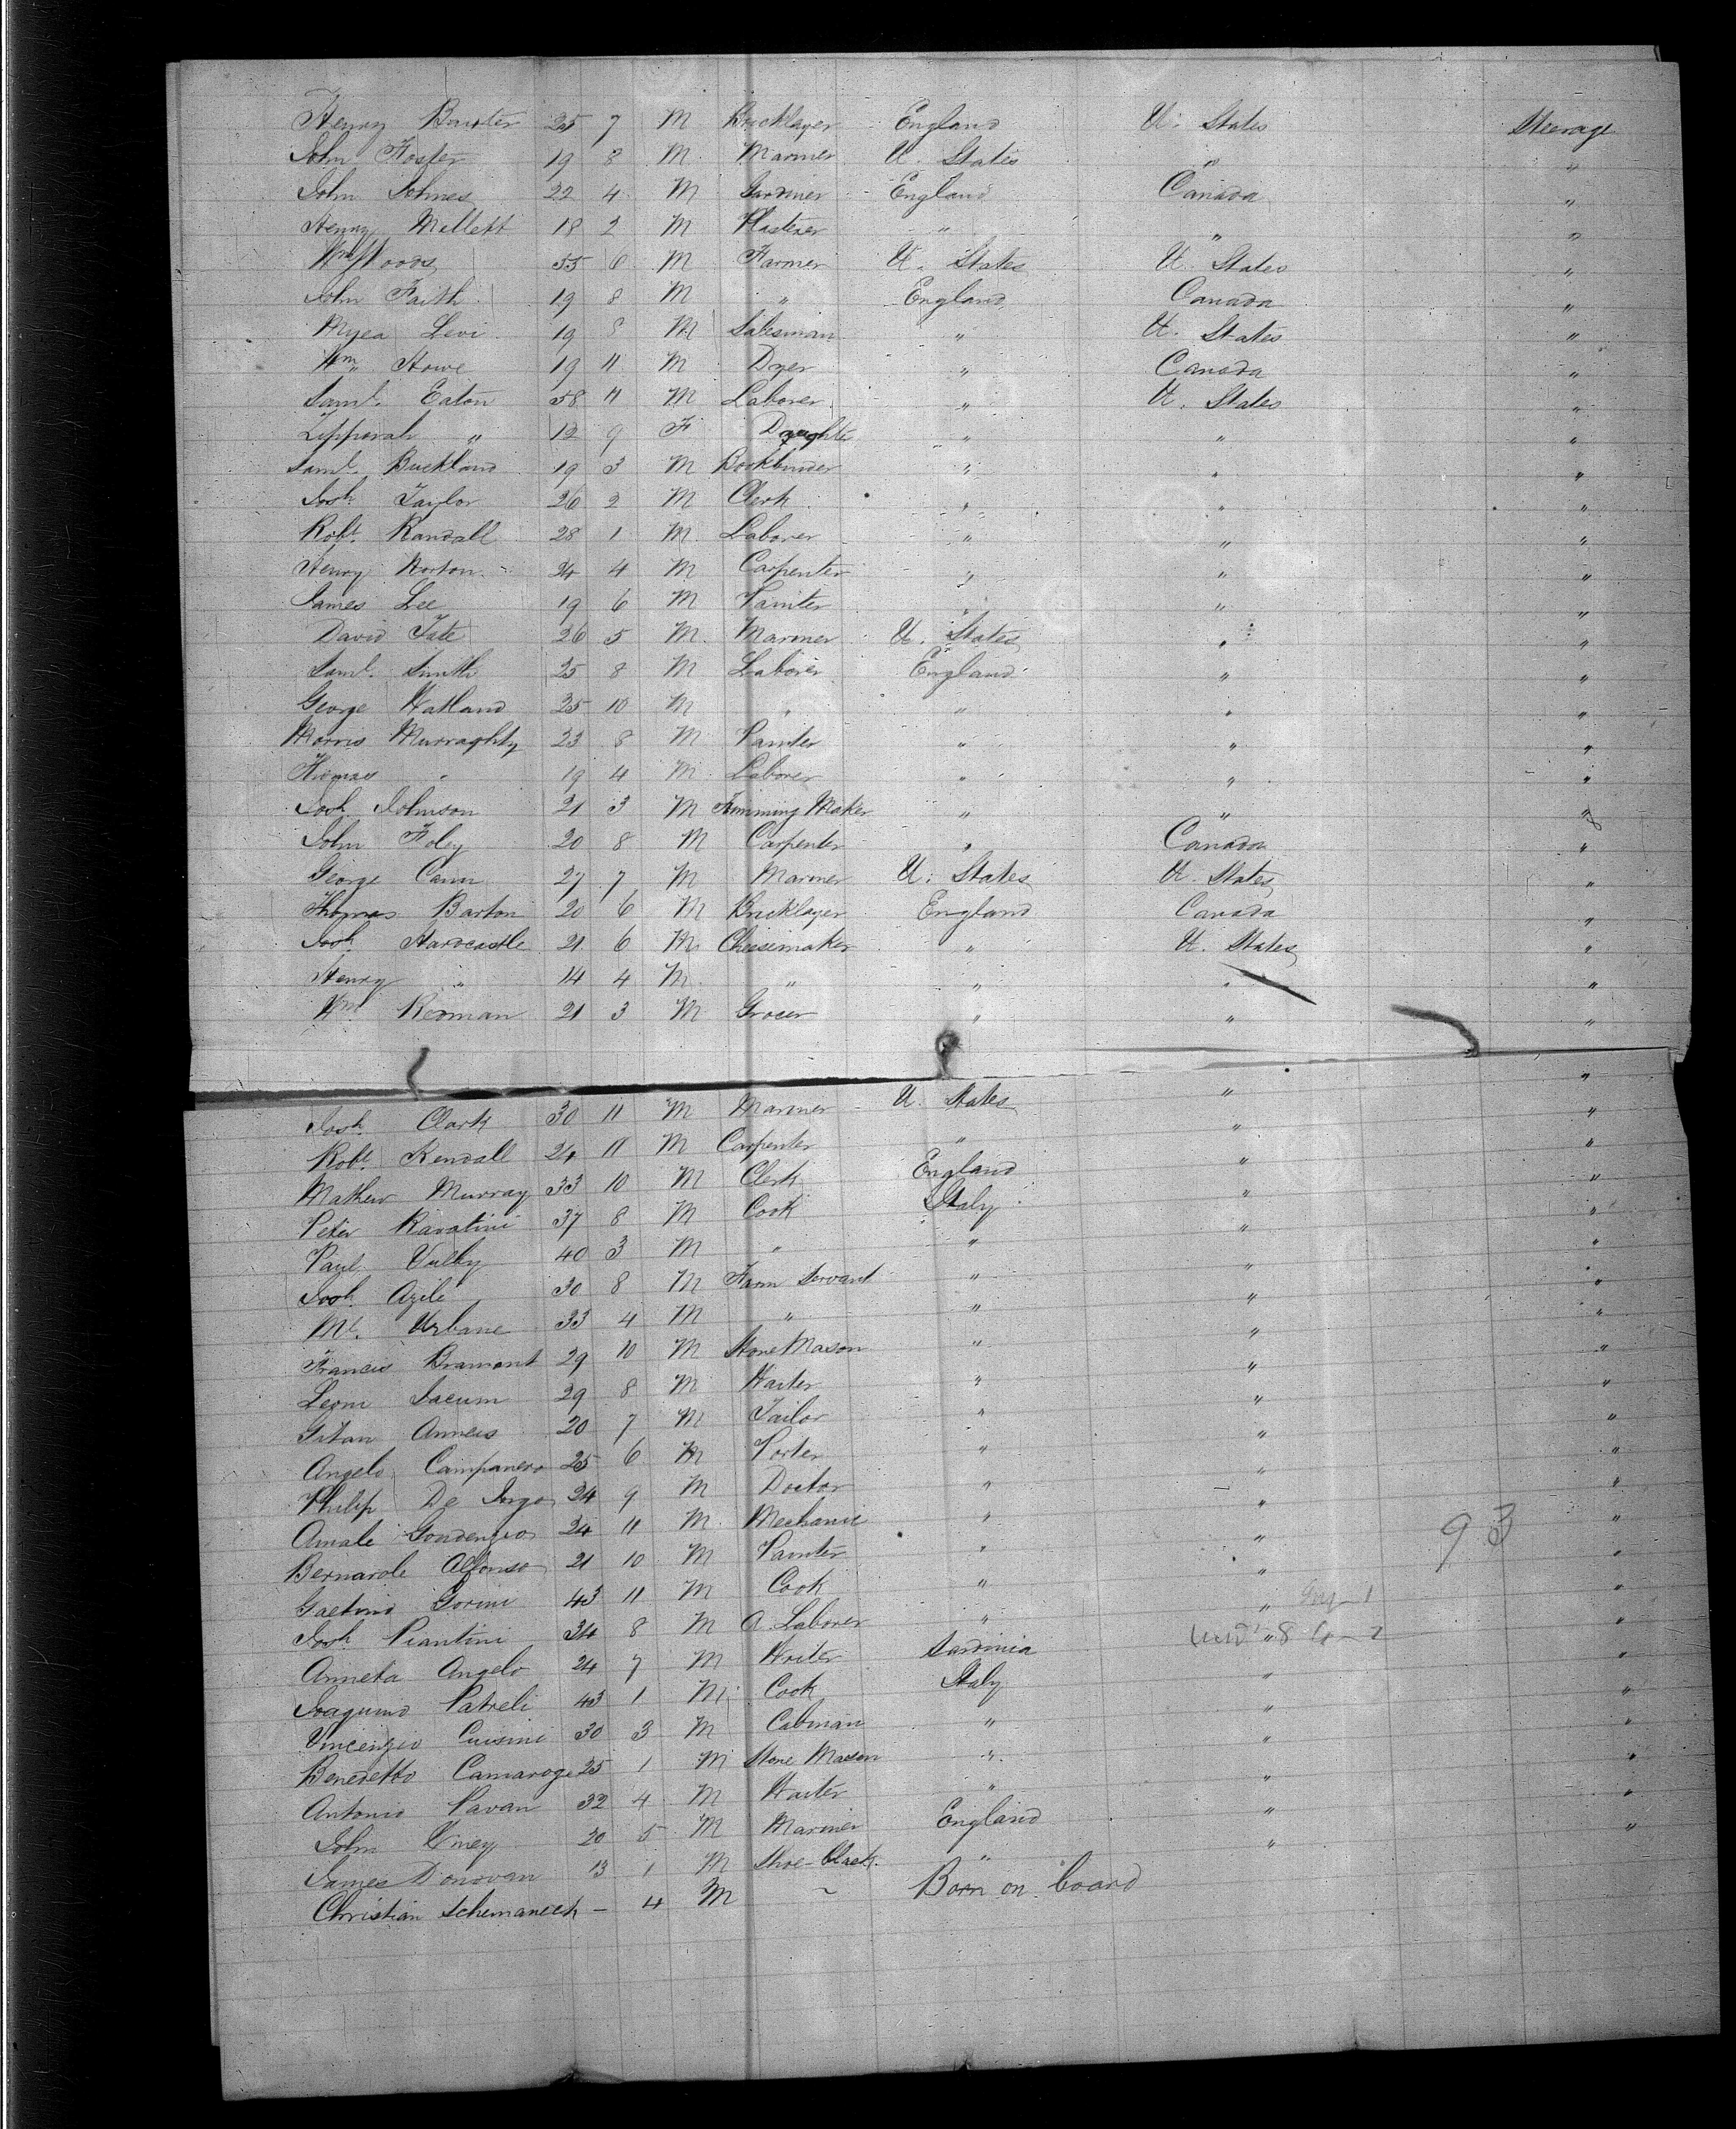 Henry Baxter 25 7 M Bricklayer England U. States Steerage
John Foster 19 8 M Mariner U. States " "
John Johnes 22 4 M Gardiner England Canada "
Henry Mellett 18 2 M Plasterer " " "
Wm Woods 55 6 M Farmer U. States U. States "
John Faith 19 8 M " England Canada "
Myea Levi 19 8 M Salesman " U. States "
Wm Howe 19 11 M Dyer " Canada "
Saml. Eaton 58 11 M Laborer " U. States "
Zipporah " 12 9 F Daughter " " "
Saml. Buckland 19 3 M Bookbinder " " "
Josh. Taylor 26 2 M Clerk " " "
Robt. Randall 28 1 M Laborer " " "
Henry Horton 24 4 M Carpenter " " "
James Lee 19 6 M Painter " " "
David Tate 26 5 M Mariner U. States " "
Saml. Smith 25 8 M Laborer England " "
George Hatland 25 10 M " " " "
Morris Murraghty 23 8 M Painter " " "
Thomas " 19 4 M Laborer " " "
Josh. Johnson 21 3 M Trimming Maker " " "
John Foley 20 8 M Carpenter " Canada "
George Cann 27 7 M Mariner U. States U. States "
Thomas Barton 20 6 M Bricklayer England Canada "
Josh. Hardcastle 21 6 M Cheesemaker " U. States "
Henry " 14 4 M " " " "
Wm. Redman 21 3 M Grocer " " "
Josh. Clark 30 11 M Mariner U. States " "
Robt. Kendall 24 11 M Carpenter " " "
Mathew Murray 33 10 M Clerk England " "
Peter Ravatini 37 8 M Cook Italy " "
Paul Vulby 40 3 M " " " "
Josh. Azile 30 8 M Farm Servant " " "
Ml. Urbane 33 4 M " " " "
Francis Bramont 29 10 M Stone Mason " " "
Leoni Jacum 29 8 M Waiter " " "
Gitan Anneis 20 7 M Tailor " " "
Angelo Campanero 25 6 M Porter " " "
Philip De Jorgo 24 9 M Doctor " " "
Amale Goudenzio 24 11 M Mechanic " " "
93
Bernarole Alfonso 21 10 M Painter " " "
Gaetino Gorini 43 11 M Cook " " "
Josh. Piantini 34 8 M A. Laborer " " "
Anneta Angelo 24 7 M Writer Sardinia "
Joaquino Patreli 43 1 M Cook Italy " "
Vincenzio Cuisini 30 3 M Cabman " " "
Benedetto Camaroge 25 1 M Stone Mason " " "
Antonio Pavan 32 4 M Waiter " " "
John Viney 20 5 M Mariner England " "
James Donovan 13 1 M Shoe-Black " " "
Christian Schemaneck - 4 M ~ Born on board